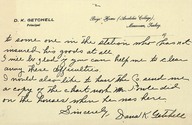 D. K. GETCHELL
Principal
Boys' Home (Anatolia College)
Marsovan, Turkey
to some one in this station who "has not
insured his goods at all
I will be glad if you can help me to clear
away these difficulties.
I should also like to have the send me
a copy of the chart work Mr. decided
on the houses when he was here
Sincerely
Dana K. Getchell